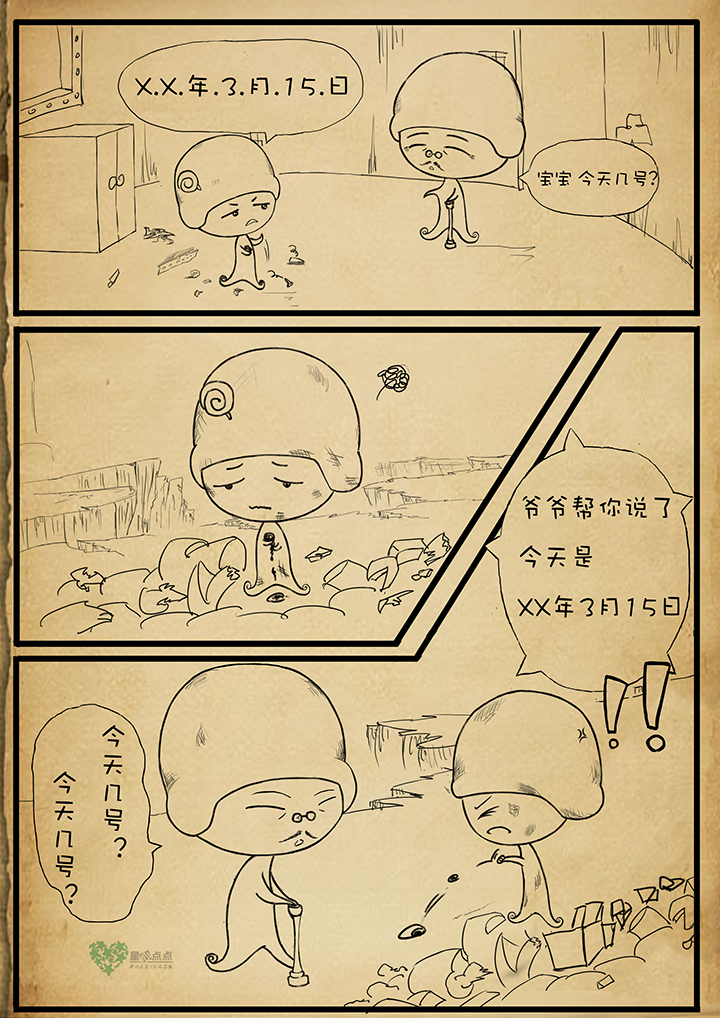 X.X.年.3.月.15.日
宝宝 今天几号?
爷爷帮你说了
今天是
XX年3月15日
!!
今天几号?
今天几号?
星心点点